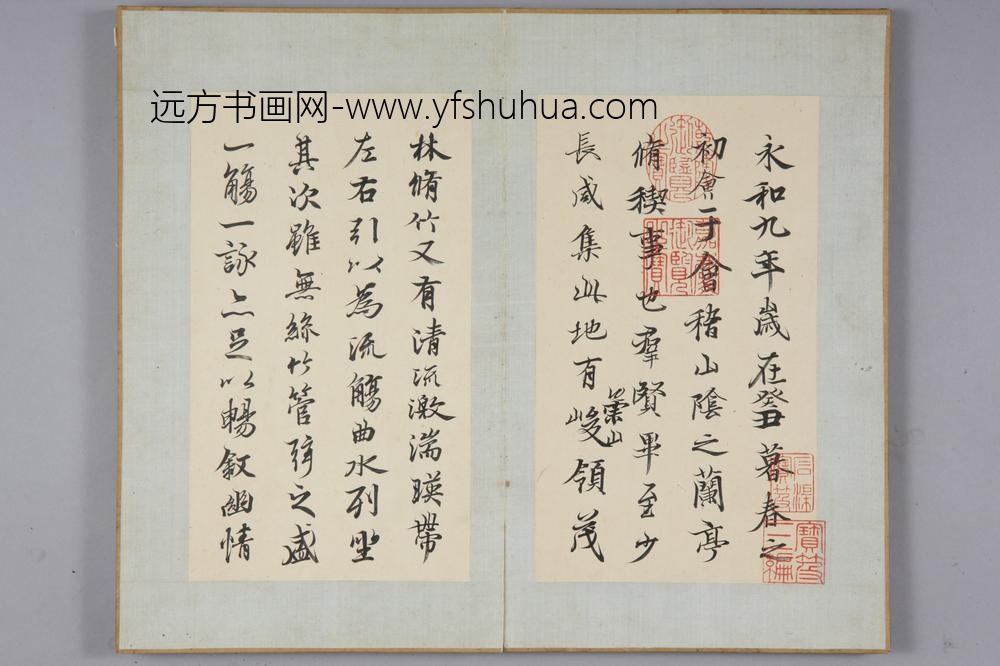 远方书画网-www.yfshuhua.com
永和九年歲在癸丑暮春之
初會于會稽山陰之蘭亭
脩稧事也羣賢畢至少
長咸集此地有崇山峻領茂
林脩竹又有清流激湍暎帶
左右引以為流觴曲水列坐
其次雖無絲竹管弦之盛
一觴一詠亦足以暢敘幽情
嘉慶御覽之寶
石渠寶笈
寶笈三編